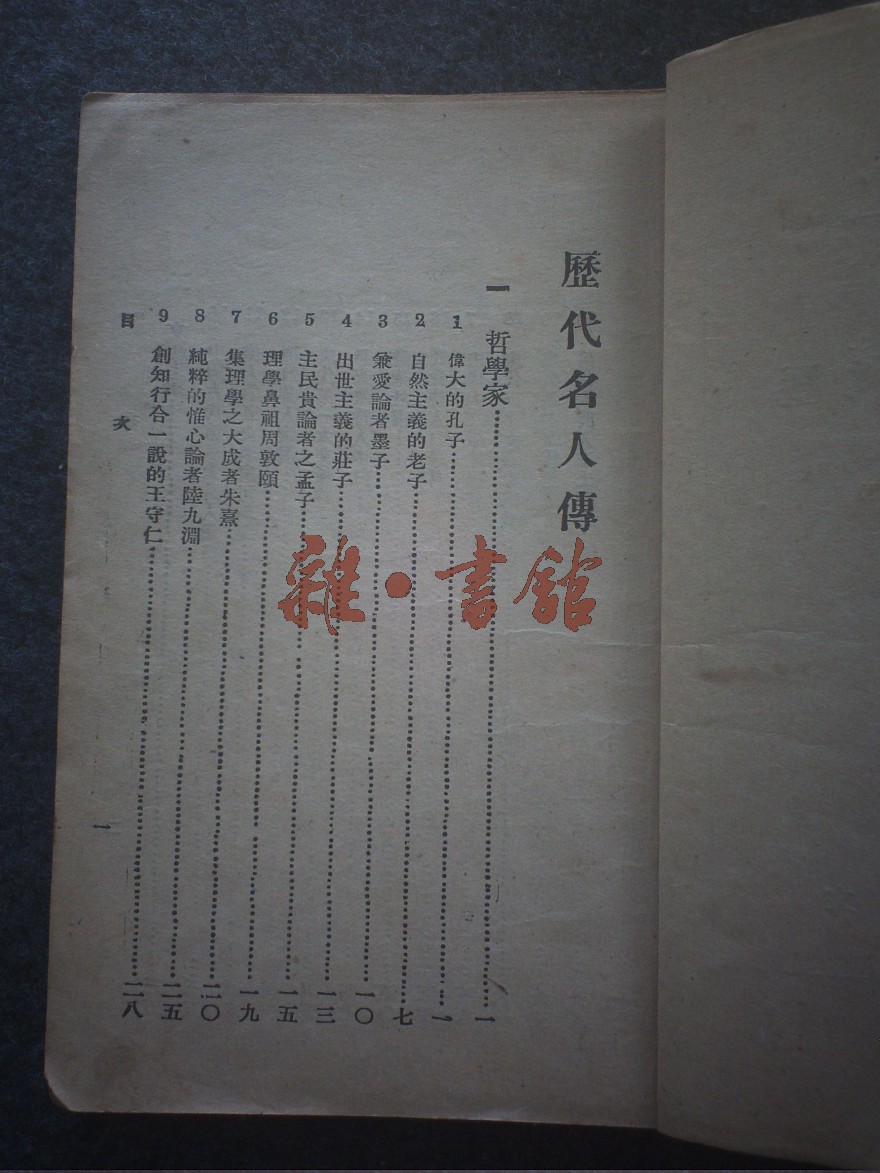 歷代名人傳
一 哲學家……一
1 偉大的孔子……一
2 自然主義的老子……七
3 兼愛論者墨子……一〇
4 出世主義的莊子……一三
5 主民貴論者之孟子……一五
6 理學鼻祖周敦頤……一九
7 集理學之大成者朱熹……二〇
8 純粹的惟心論者陸九淵……二五
9 創知行合一說的王守仁……二八
目次
一
雜·書館